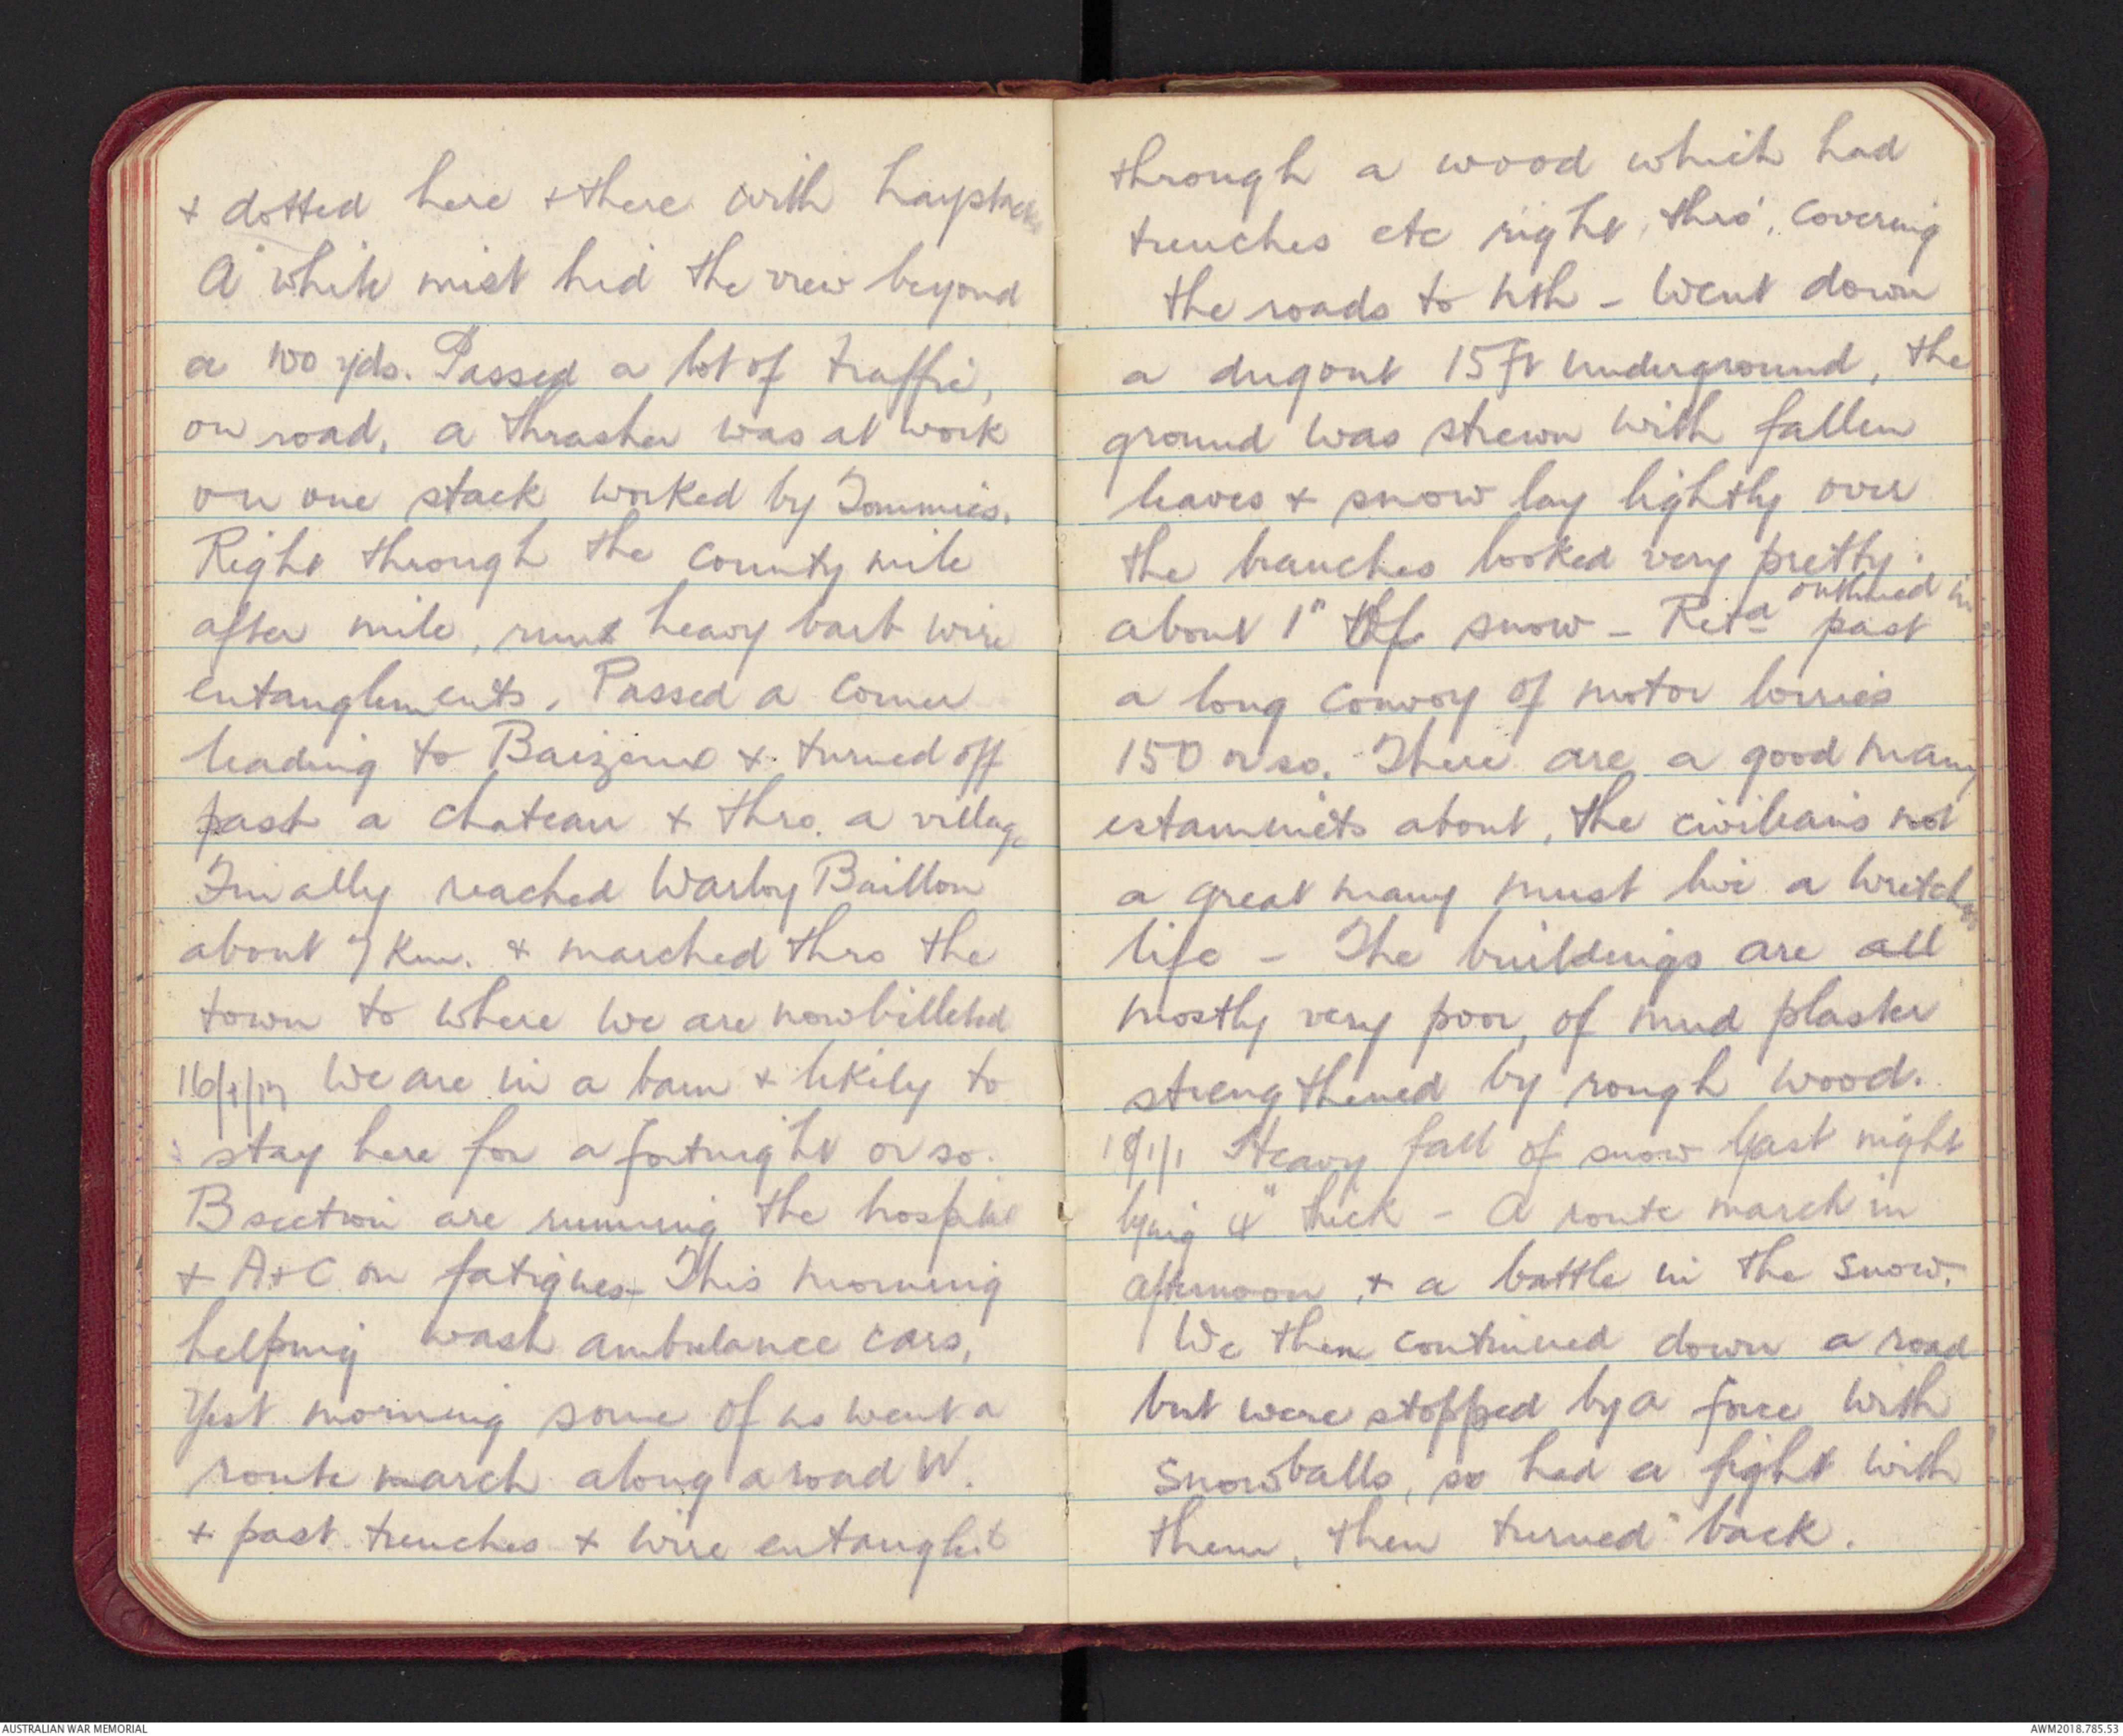 + dotted here + there with haystacks
A white mist hid the view beyond
a 100 yds. Passed a lot of traffic,
on road, a thrasher was at work
on one stack worked by Tommies.
Right through the county mile
after mile, runs heavy barb wire
entanglements. Passed a corner
leading to Baizeux + turned off
past a chateau + thro. a village
Finally reached Warloy Baillon
about 7 km. + marched thro the
town to where we are now billeted
16/1/17 We are in a barn + likely to
stay here for a fortnight or so.
B section are running the hospital
+ A+C on fatigues - This morning
helping wash ambulance cars,
Yest morning some of us went a
route march along a road W.
+ past trenches + wire entanglt
through a wood which had
trenches etc right, thro', covering
the roads to nth - Went down
a dugout 15 ft underground, the
ground was strewn with fallen
leaves + snow lay lightly over
the branches looked very pretty.
outlined in
about 1" of snow - Retd past
a long convoy of motor lorries
150 or so. There are a good many
estaminets about, the civilians not
a great many must live a wretched
life - The buildings are all
mostly very poor, of mud plaster
strengthened by rough wood.
18/1/1 Heavy fall of snow last night
lying 4" thick - A route march in
afternoon, + a battle in the snow.
We then continued down a road
but were stopped by a force with
snowballs, so had a fight with
them, then turned back.
AUSTRALIAN WAR MEMORIAL
AWM2018.785.53